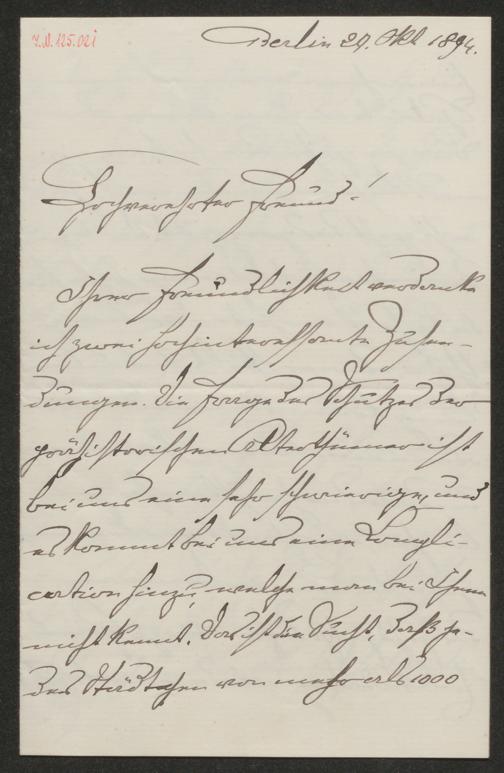 I.N. 125.021
Berlin 29. Okt 1894.
Hochverehrter Freund!
Ihrer Freundlichkeit verdanke
ich zwei hochinteressante Zusen-
dungen. Die Frage des Schutzes der
prähistorischen Alterthümer ist
bei uns eine sehr schwierige, und
es kommt bei uns eine Compli-
cation hinzu, welche man bei Ihnen
nicht kennt. Das ist die Sucht, daß je-
des Städtchen von mehr als 1000